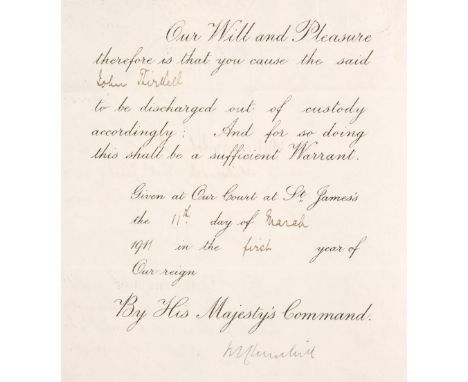 Our Will and Pleasure
therefore is that you cause the said
John Thirkell
to be discharged out of custody
accordingly: And for so doing
this shall be a sufficient Warrant.
Given at Our Court at St. James's
the 11th day of March
1911 in the first year of
Our reign
By His Majesty's Command.